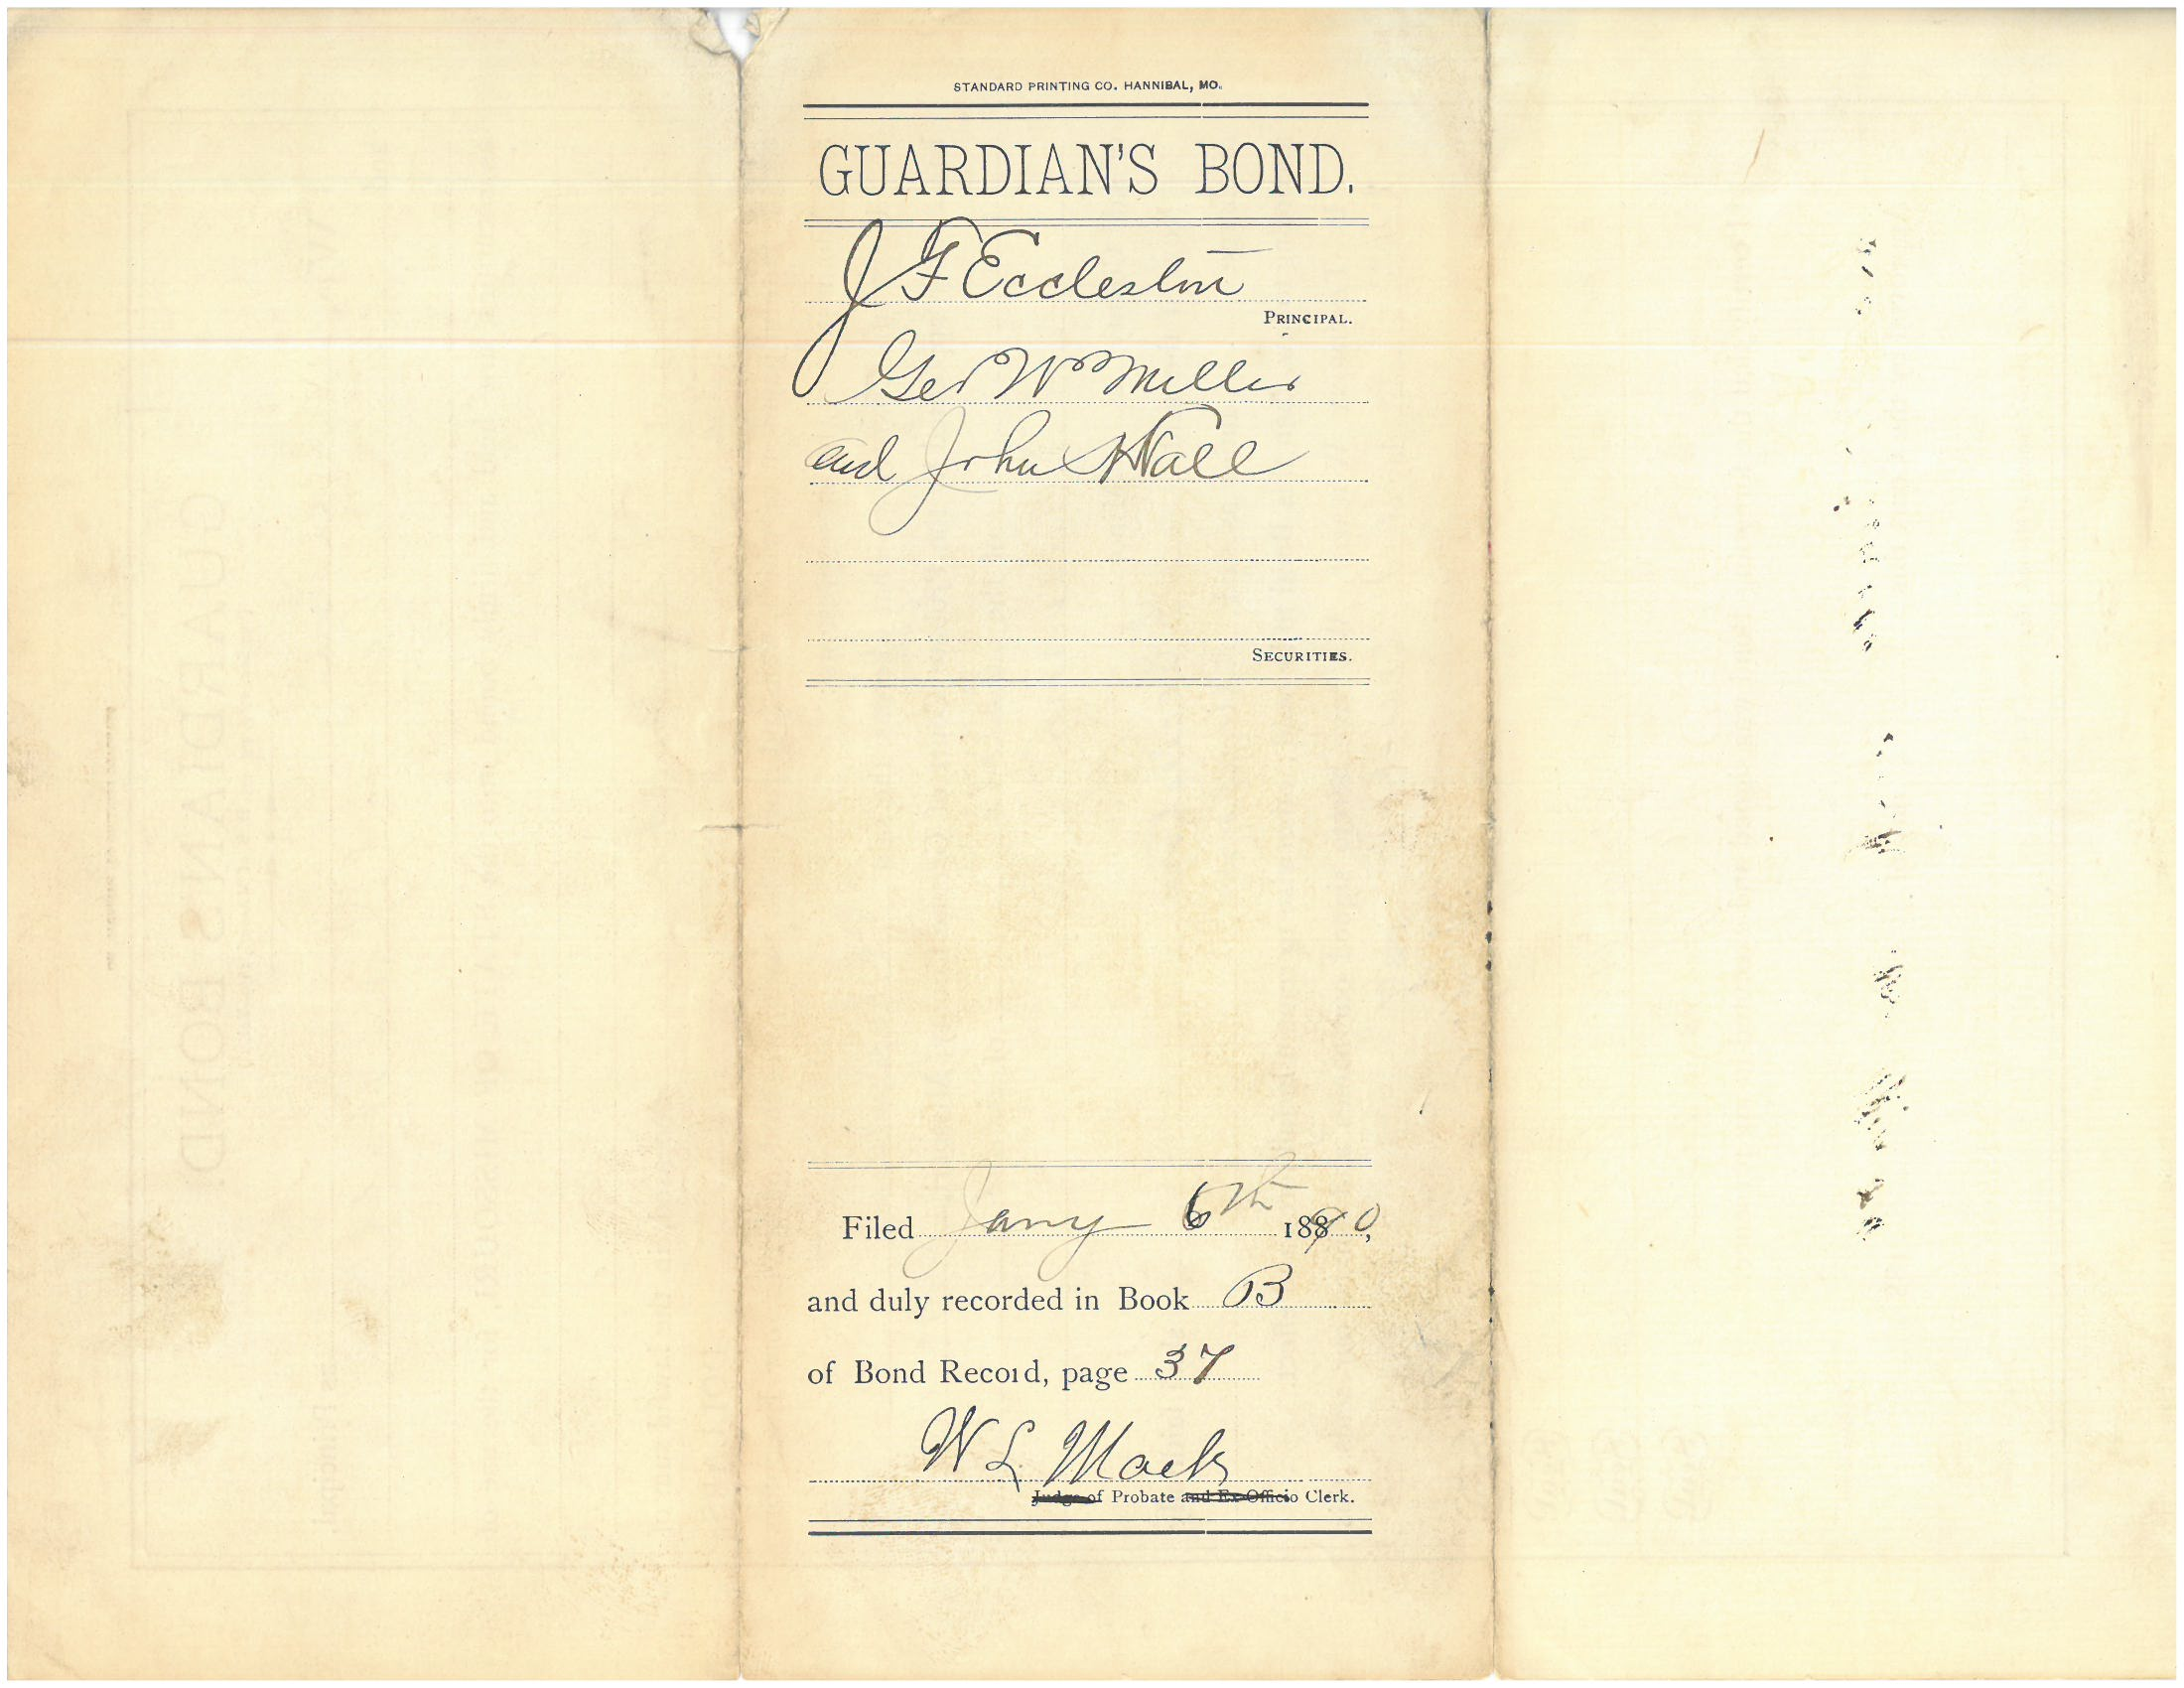 STANDARD PRINTING CO. HANNIBAL, MO.
GUARDIAN'S BOND.
J F Eccleston
PRINCIPAL.
Geo W Miller
and John Hall
SECURITIES.
Filed Jany 6th 1890,
and duly recorded in Book B
of Bond Record, page 37
W L Mack
Judge of Probate and Ex-Officio Clerk.